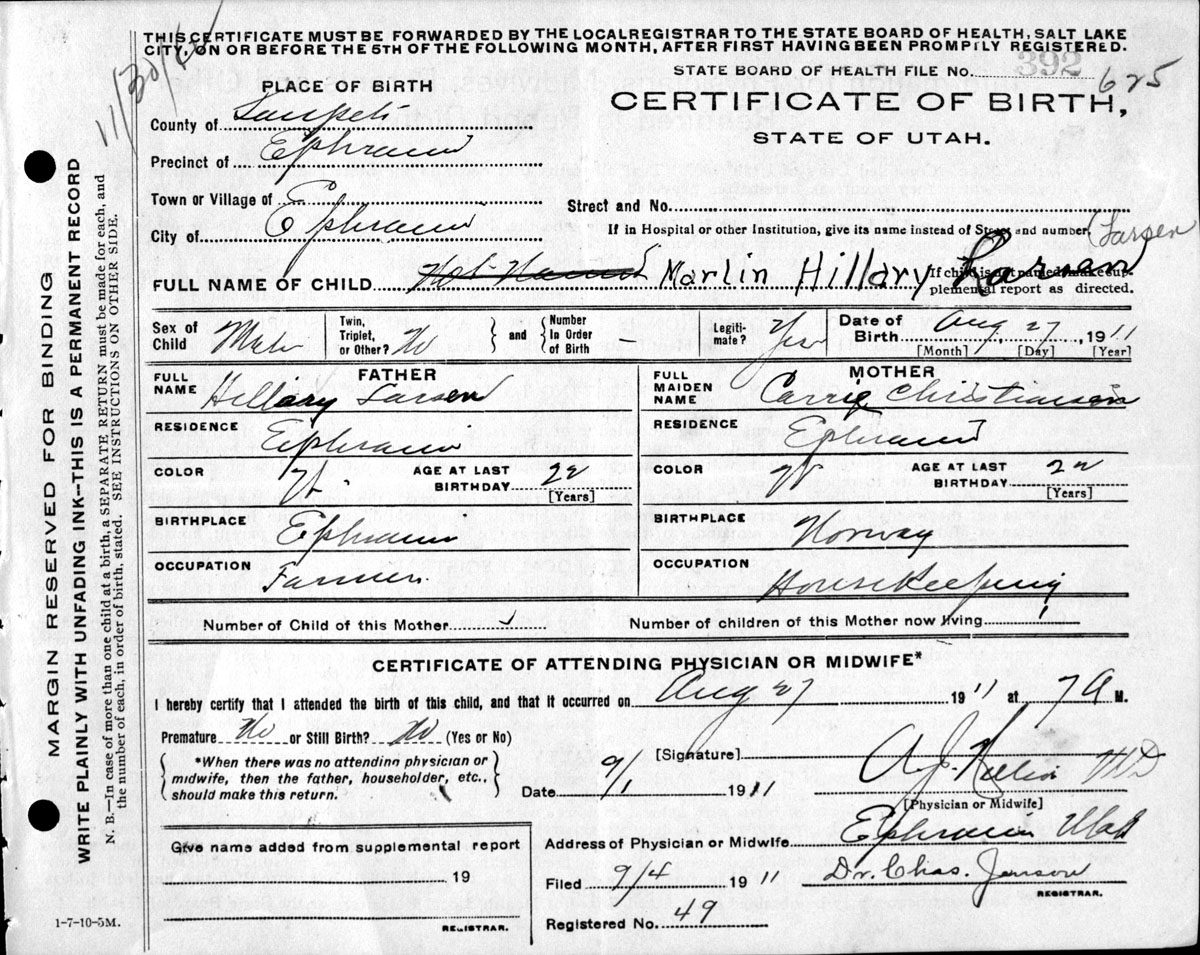 THIS CERTIFICATE MUST BE FORWARDED BY THE LOCAL REGISTRAR TO THE STATE BOARD OF HEALTH, SALT LAKE
CITY, ON OR BEFORE THE 5TH OF THE FOLLOWING MONTH, AFTER FIRST HAVING BEEN PROMPILY REGISTERED.
11/30/15
STATE BOARD OF HEALTH FILE No. 392 625
PLACE OF BIRTH
CERTIFICATE OF BIRTH,
STATE OF UTAH.
County of Sanpete
Precinct of Ephraim
Town or Village of
Street and No.
City of Ephraim
If in Hospital or other Institution, give its name instead of Street and number.
(Larsen)
FULL NAME OF CHILD Not Named Marlin Hillary Larsen
If child is not named make sup-
plemental report as directed.
Sex of Child Male
Twin, Triplet, or Other? No
and
Number In Order of Birth –
Legiti-mate? Yes
Date of Birth Aug 27, 1911
[Month] [Day] [Year]
FATHER
FULL NAME Hillary Larsen
RESIDENCE Ephraim
COLOR W. AGE AT LAST BIRTHDAY 22
[Years]
BIRTHPLACE Ephraim
OCCUPATION Farmer.
MOTHER
FULL MAIDEN NAME Carrie Christiansen
RESIDENCE Ephraim
COLOR W AGE AT LAST BIRTHDAY 22
[Years]
BIRTHPLACE Norway
OCCUPATION Housekeeping
Number of Child of this Mother 1 Number of children of this Mother now living 1
CERTIFICATE OF ATTENDING PHYSICIAN OR MIDWIFE*
I hereby certify that I attended the birth of this child, and that it occurred on Aug 27 1911 at 7 A M.
Premature No or Still Birth? No (Yes or No)
*When there was no attending physician or
midwife, then the father, householder, etc.,
should make this return.
[Signature] A. J. MD
[Physician or Midwife]
Date 9/1 1911
Address of Physician or Midwife Ephraim Utah
Filed 9/4 1911 Dr. Chas. Jenson
REGISTRAR.
Registered No. 49
Give name added from supplemental report
19
REGISTRAR.
1-7-10-5M.
MARGIN RESERVED FOR BINDING
WRITE PLAINLY WITH UNFADING INK--THIS IS A PERMANENT RECORD
N. B.—In case of more than one child at a birth, a SEPARATE RETURN must be made for each, and
the number of each, in order of birth, stated. SEE INSTRUCTION ON OTHER SIDE.